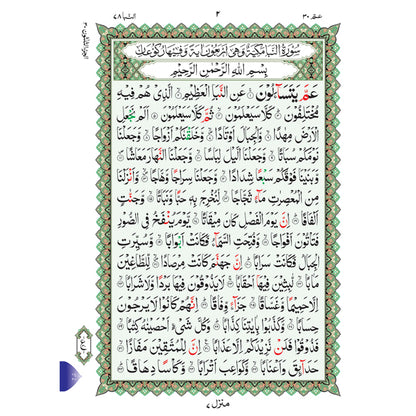 عم ۳۰
۲
النبا ۷۸
سُوْرَةُ النَّبَاِ مَكِّيَّةٌ وَّهِيَ اَرْبَعُوْنَ اٰيَةً وَّفِيْهَا رُكُوْعَانِ
بِسْمِ اللّٰهِ الرَّحْمٰنِ الرَّحِيْمِ
عَمَّ يَتَسَآءَلُوْنَ ۝ عَنِ النَّبَاِ الْعَظِيْمِ ۝ الَّذِيْ هُمْ فِيْهِ
مُخْتَلِفُوْنَ ۝ كَلَّا سَيَعْلَمُوْنَ ۝ ثُمَّ كَلَّا سَيَعْلَمُوْنَ ۝ اَلَمْ نَجْعَلِ
الْاَرْضَ مِهٰدًا ۝ وَّالْجِبَالَ اَوْتَادًا ۝ وَّخَلَقْنٰكُمْ اَزْوَاجًا ۝ وَّجَعَلْنَا
نَوْمَكُمْ سُبَاتًا ۝ وَّجَعَلْنَا الَّيْلَ لِبَاسًا ۝ وَّجَعَلْنَا النَّهَارَ مَعَاشًا ۝
وَّبَنَيْنَا فَوْقَكُمْ سَبْعًا شِدَادًا ۝ وَّجَعَلْنَا سِرَاجًا وَّهَّاجًا ۝ وَّاَنْزَلْنَا
مِنَ الْمُعْصِرٰتِ مَآءً ثَجَّاجًا ۝ لِّنُخْرِجَ بِهٖ حَبًّا وَّنَبَاتًا ۝ وَّجَنّٰتٍ
اَلْفَافًا ۝ اِنَّ يَوْمَ الْفَصْلِ كَانَ مِيْقَاتًا ۝ يَّوْمَ يُنْفَخُ فِي الصُّوْرِ
فَتَاْتُوْنَ اَفْوَاجًا ۝ وَّفُتِحَتِ السَّمَآءُ فَكَانَتْ اَبْوَابًا ۝ وَّسُيِّرَتِ
الْجِبَالُ فَكَانَتْ سَرَابًا ۝ اِنَّ جَهَنَّمَ كَانَتْ مِرْصَادًا ۝ لِّلطَّاغِيْنَ
مَاٰبًا ۝ لّٰبِثِيْنَ فِيْهَآ اَحْقَابًا ۝ لَا يَذُوْقُوْنَ فِيْهَا بَرْدًا وَّلَا شَرَابًا ۝
اِلَّا حَمِيْمًا وَّغَسَّاقًا ۝ جَزَآءً وِّفَاقًا ۝ اِنَّهُمْ كَانُوْا لَا يَرْجُوْنَ
حِسَابًا ۝ وَّكَذَّبُوْا بِاٰيٰتِنَا كِذَّابًا ۝ وَكُلَّ شَيْءٍ اَحْصَيْنٰهُ كِتٰبًا ۝
فَذُوْقُوْا فَلَنْ نَّزِيْدَكُمْ اِلَّا عَذَابًا ۝ اِنَّ لِلْمُتَّقِيْنَ مَفَازًا ۝
حَدَآئِقَ وَاَعْنَابًا ۝ وَّكَوَاعِبَ اَتْرَابًا ۝ وَّكَاْسًا دِهَاقًا ۝
منزل ۷